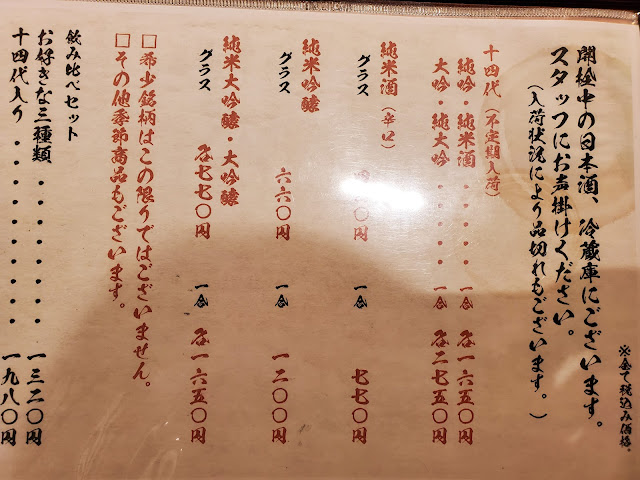 ※全て税込み価格。
開栓中の日本酒、冷蔵庫にございます。
スタッフにお声掛けください。
（入荷状況により品切れもございます。）
十四代（不定期入荷）
純吟・純米酒・・・・一合 各一六五〇円
大吟・純大吟・・・・一合 各二七五〇円
純米酒（辛口）
グラス 円 一合 七七〇円
純米吟醸
グラス 六六〇円 一合 一二〇〇円
純米大吟醸・大吟醸
グラス 各七七〇円 一合 各一六五〇円
□希少銘柄はこの限りではございません。
□その他季節商品もございます。
飲み比べセット
お好きな三種類・・・・・・・・一三二〇円
十四代入り・・・・・・・・・・一九八〇円